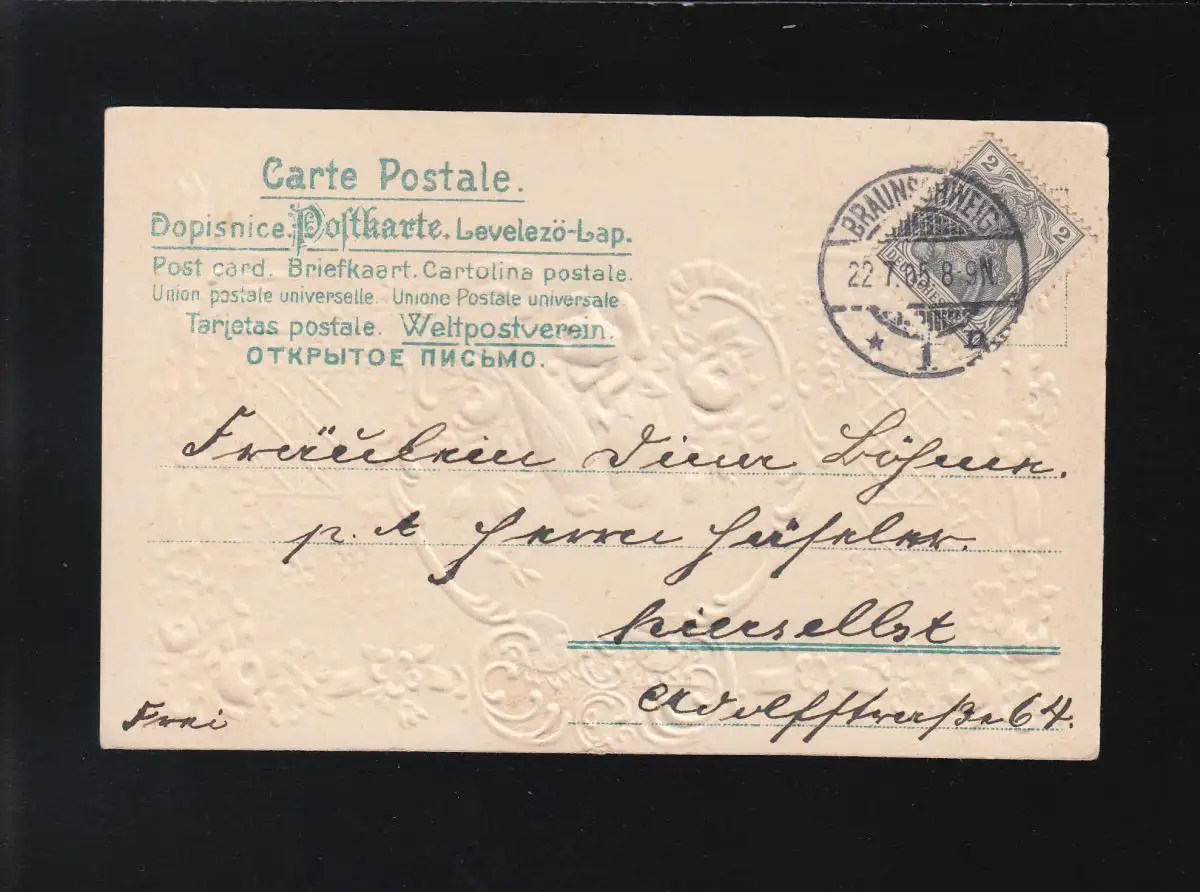 Carte Postale.
Dopisnice. Postkarte. Levelezö-Lap.
Post card. Briefkaart. Cartolina postale.
Union postale universelle. Unione Postale universale
Tarjetas postale. Weltpostverein.
ОТКРЫТОЕ ПИСЬМО.
BRAUNSCHWEIG
22.7.05.8-9N.
* 1.
2
2
Fräulein Böhme.
p. A Herrn Häseler.
hierselbst
Adolfstraße 64.
Frei